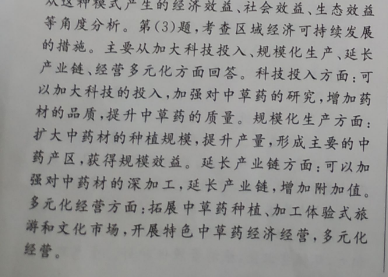 从这种模式产生的经济效益、社会效益、生态效益
等角度分析。第(3)题,考查区域经济可持续发展
的措施。主要从加大科技投入、规模化生产、延长
产业链、经营多元化方面回答。科技投入方面:可
以加大科技的投入,加强对中草药的研究,增加药
材的品质,提升中草药的质量。规模化生产方面:
扩大中药材的种植规模,提升产量,形成主要的中
药产区,获得规模效益。延长产业链方面:可以加
强对中药材的深加工,延长产业链,增加附加值。
多元化经营方面:拓展中草药种植、加工体验式旅
游和文化市场,开展特色中草药经济经营,多元化
经营。